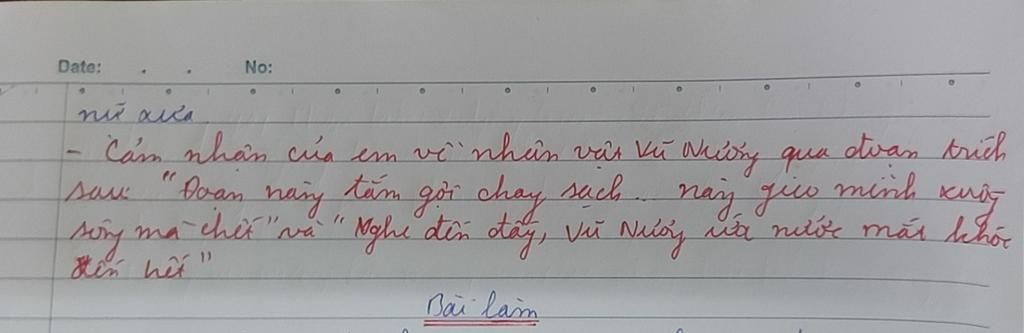 Date: . . No:
nữ xưa
- Cảm nhận của em về nhân vật Vũ Nương qua đoạn trích
sau: "Đoạn nàng tắm gội chay sạch... nàng gieo mình xuống
sông mà chết" và "Nghe đến đây, Vũ Nương ứa nước mắt khóc
đến hết"
Bài làm